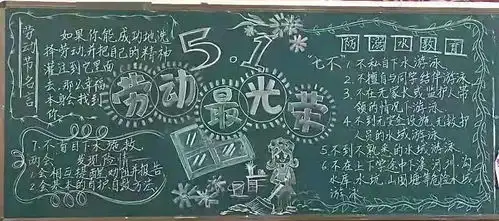 劳动节名言
如果你能成功地选
择劳动,并把自己的精神
灌注到它里面
去,那么幸福
本身会找到
你
5.1
劳动
最光荣
防溺水教育
"七不" 1.不私自下水游泳
2.不擅自与同学结伴游泳
3.不在无家人或监护人带
领的情况下游泳
4.不到无安全设施、无救护
人员的水域游泳
5.不到不熟悉的水域游泳
6.不在上下学途中下溪、河、川、沟
水库、水坑、山围塘等危险水域
游泳
7.不盲目下水施救
两会 发现险情
1.会相互提醒、劝阻并报告
2.会基本的自护自救方法